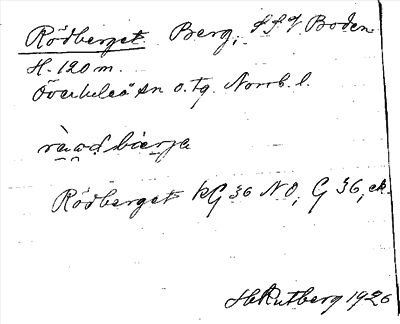 Rödberget Berg, f.f.g Boden
H. 120 m.
Överluleå sn o. tg. Norrb. l.
rὰ̀ọḍbiερja
Rödberget kG 36 NO, G 36, ek.
H Rutberg 1926